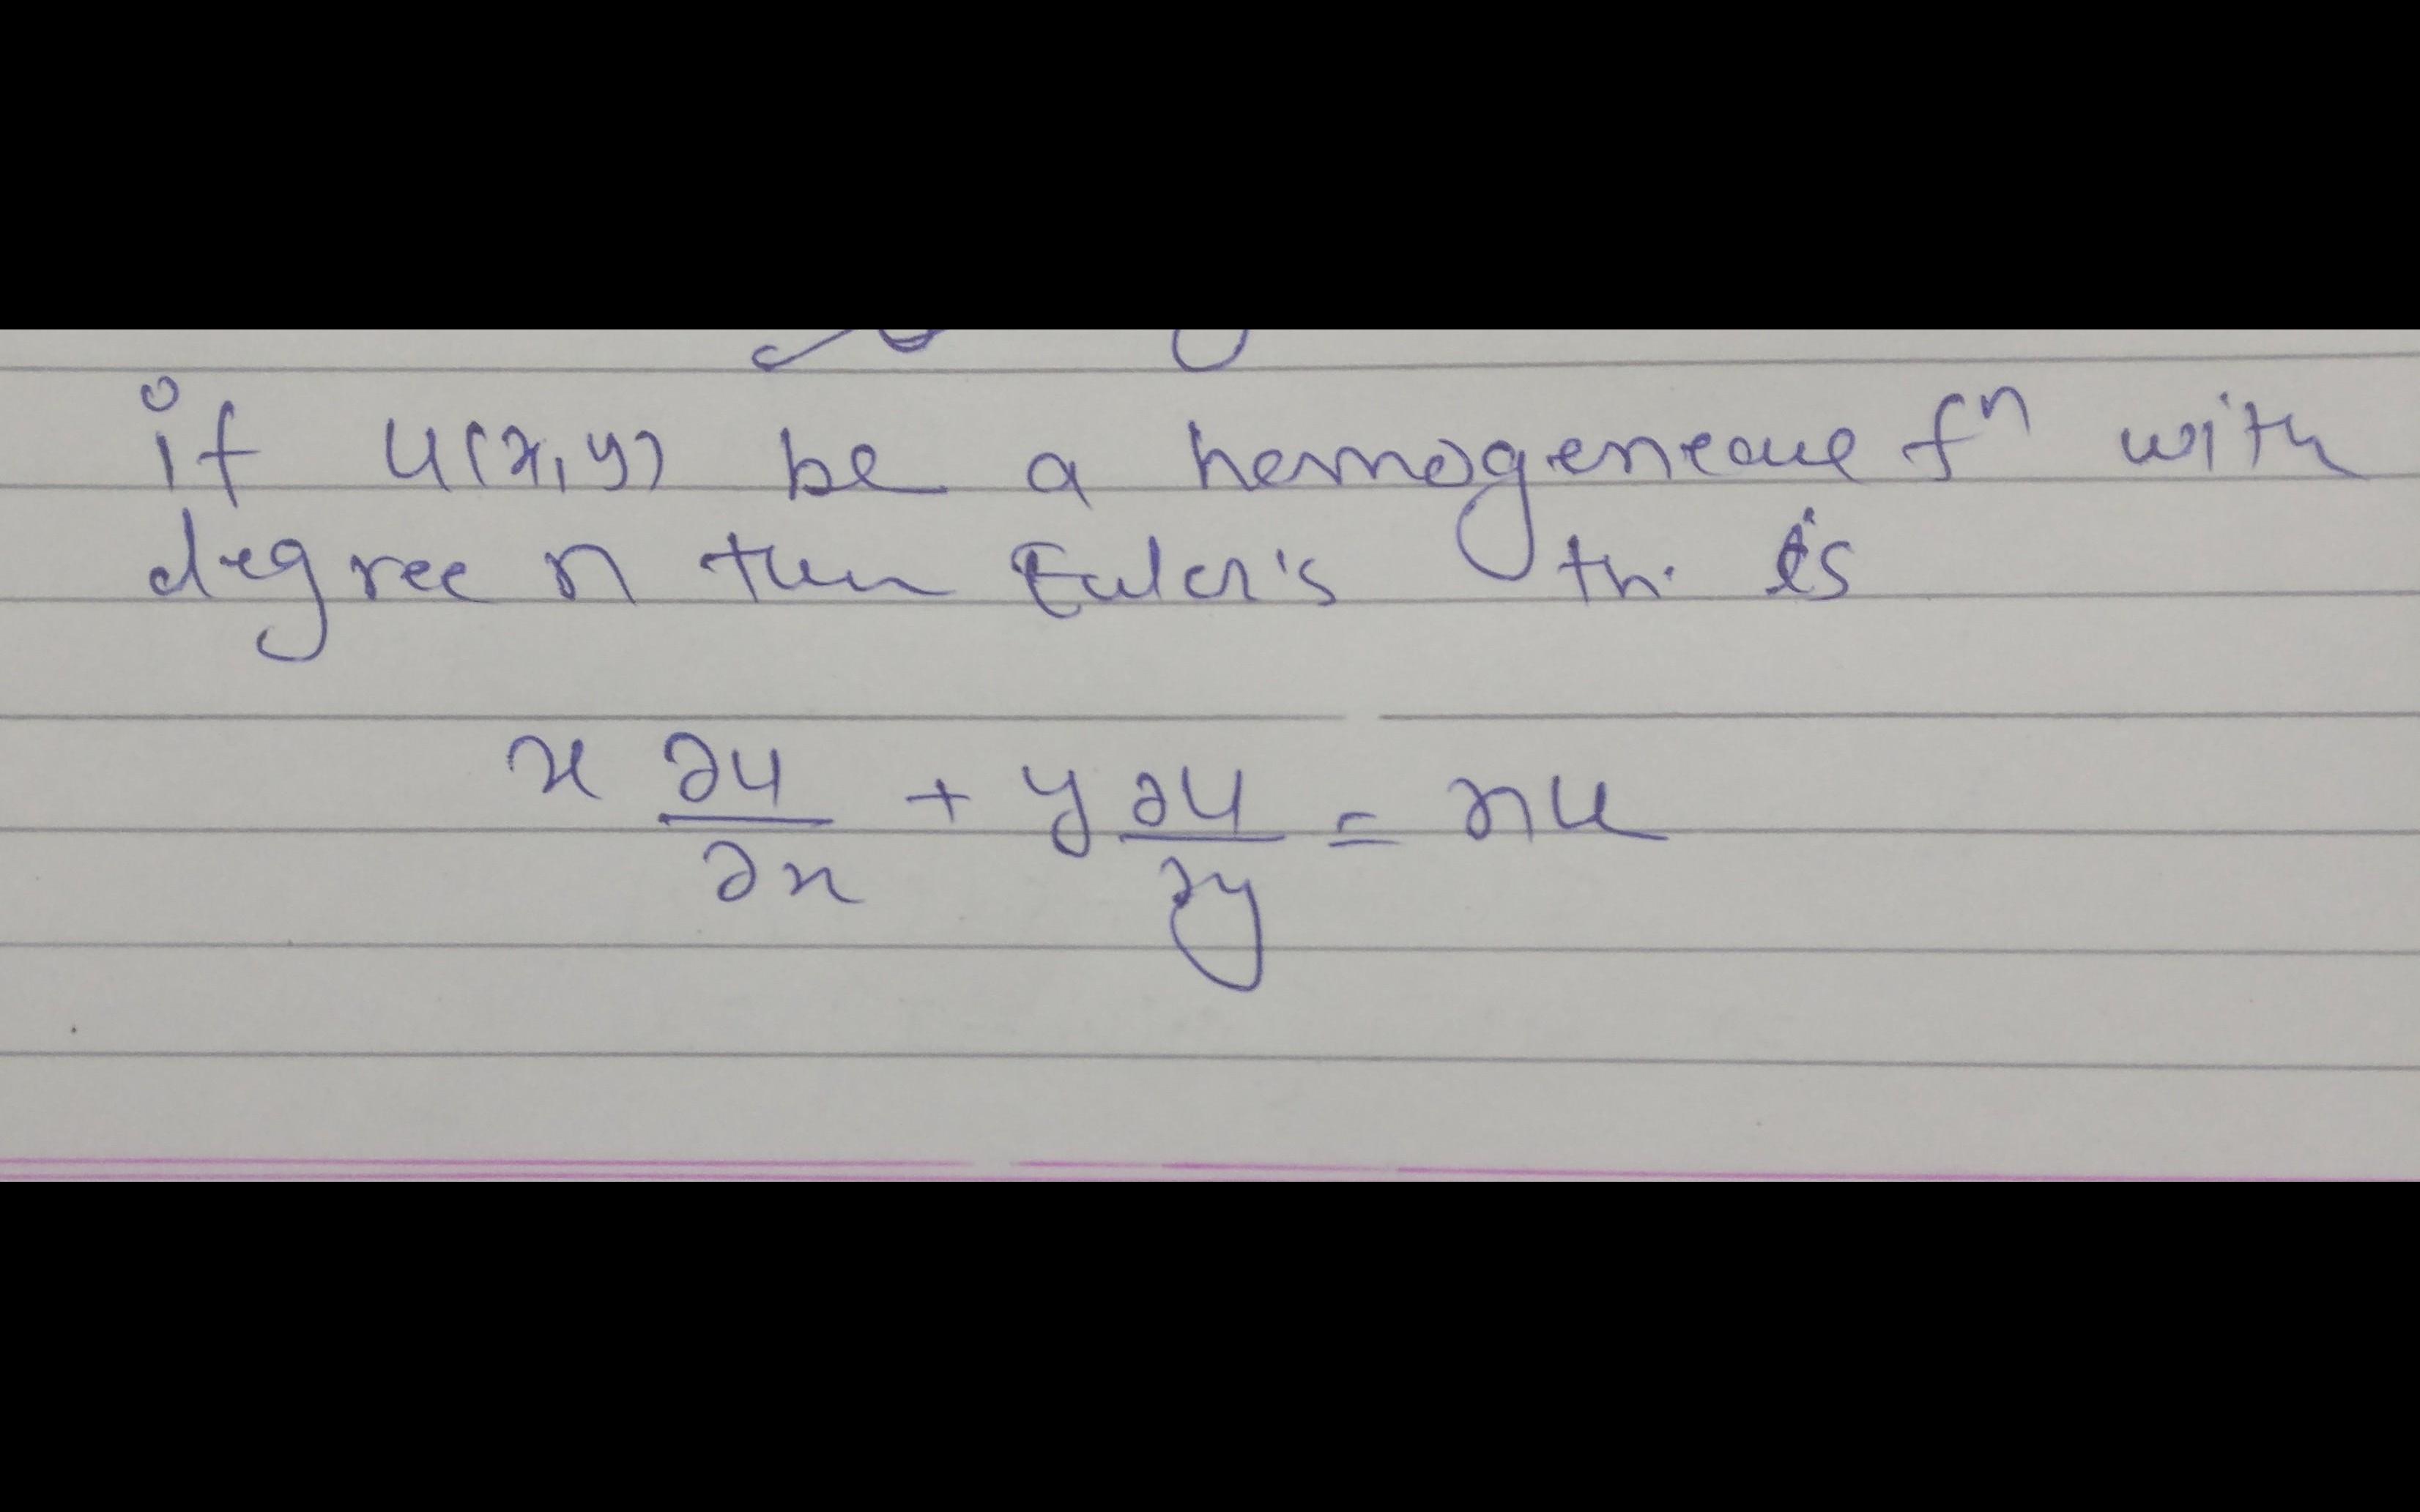 if u(x,y) be a homogeneous fⁿ with
degree n then Euler's th. is
x ∂u/∂x + y ∂u/∂y = nu